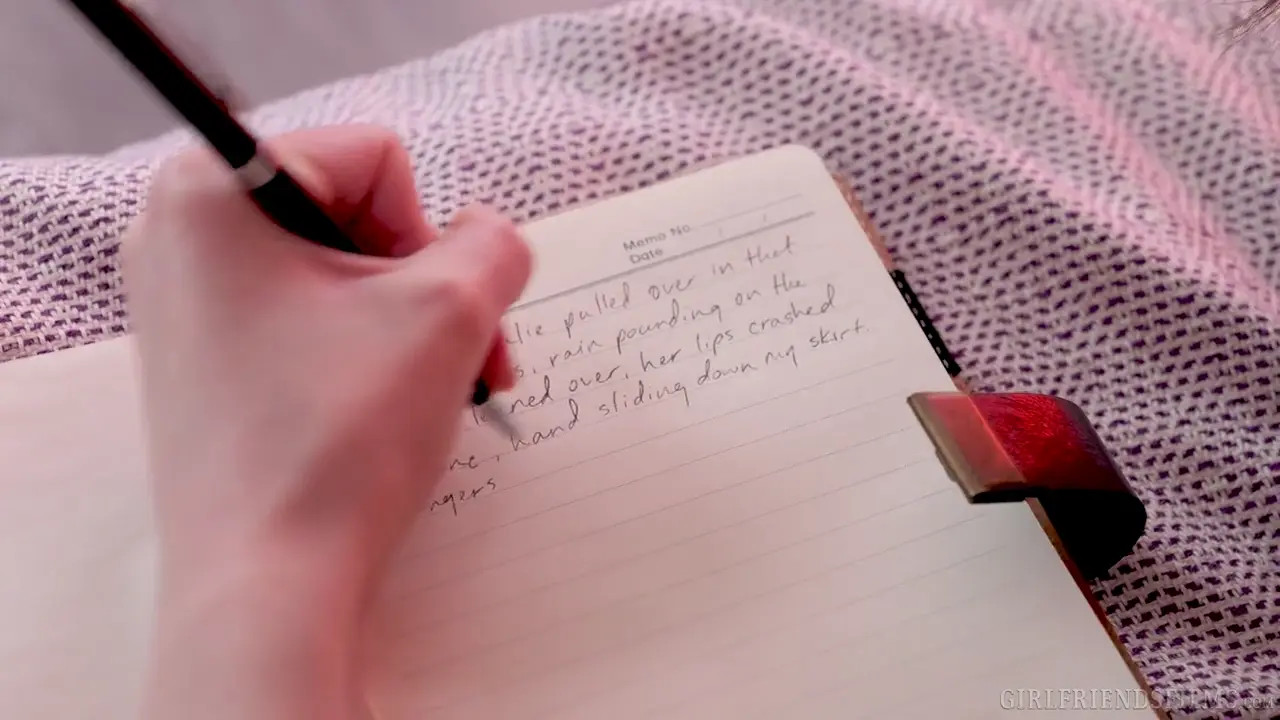 Memo No.
Date
pulled over in that
rain pounding on the
over, her lips crashed
hand sliding down my skirt.
GIRLFRIENDSFILMS.com